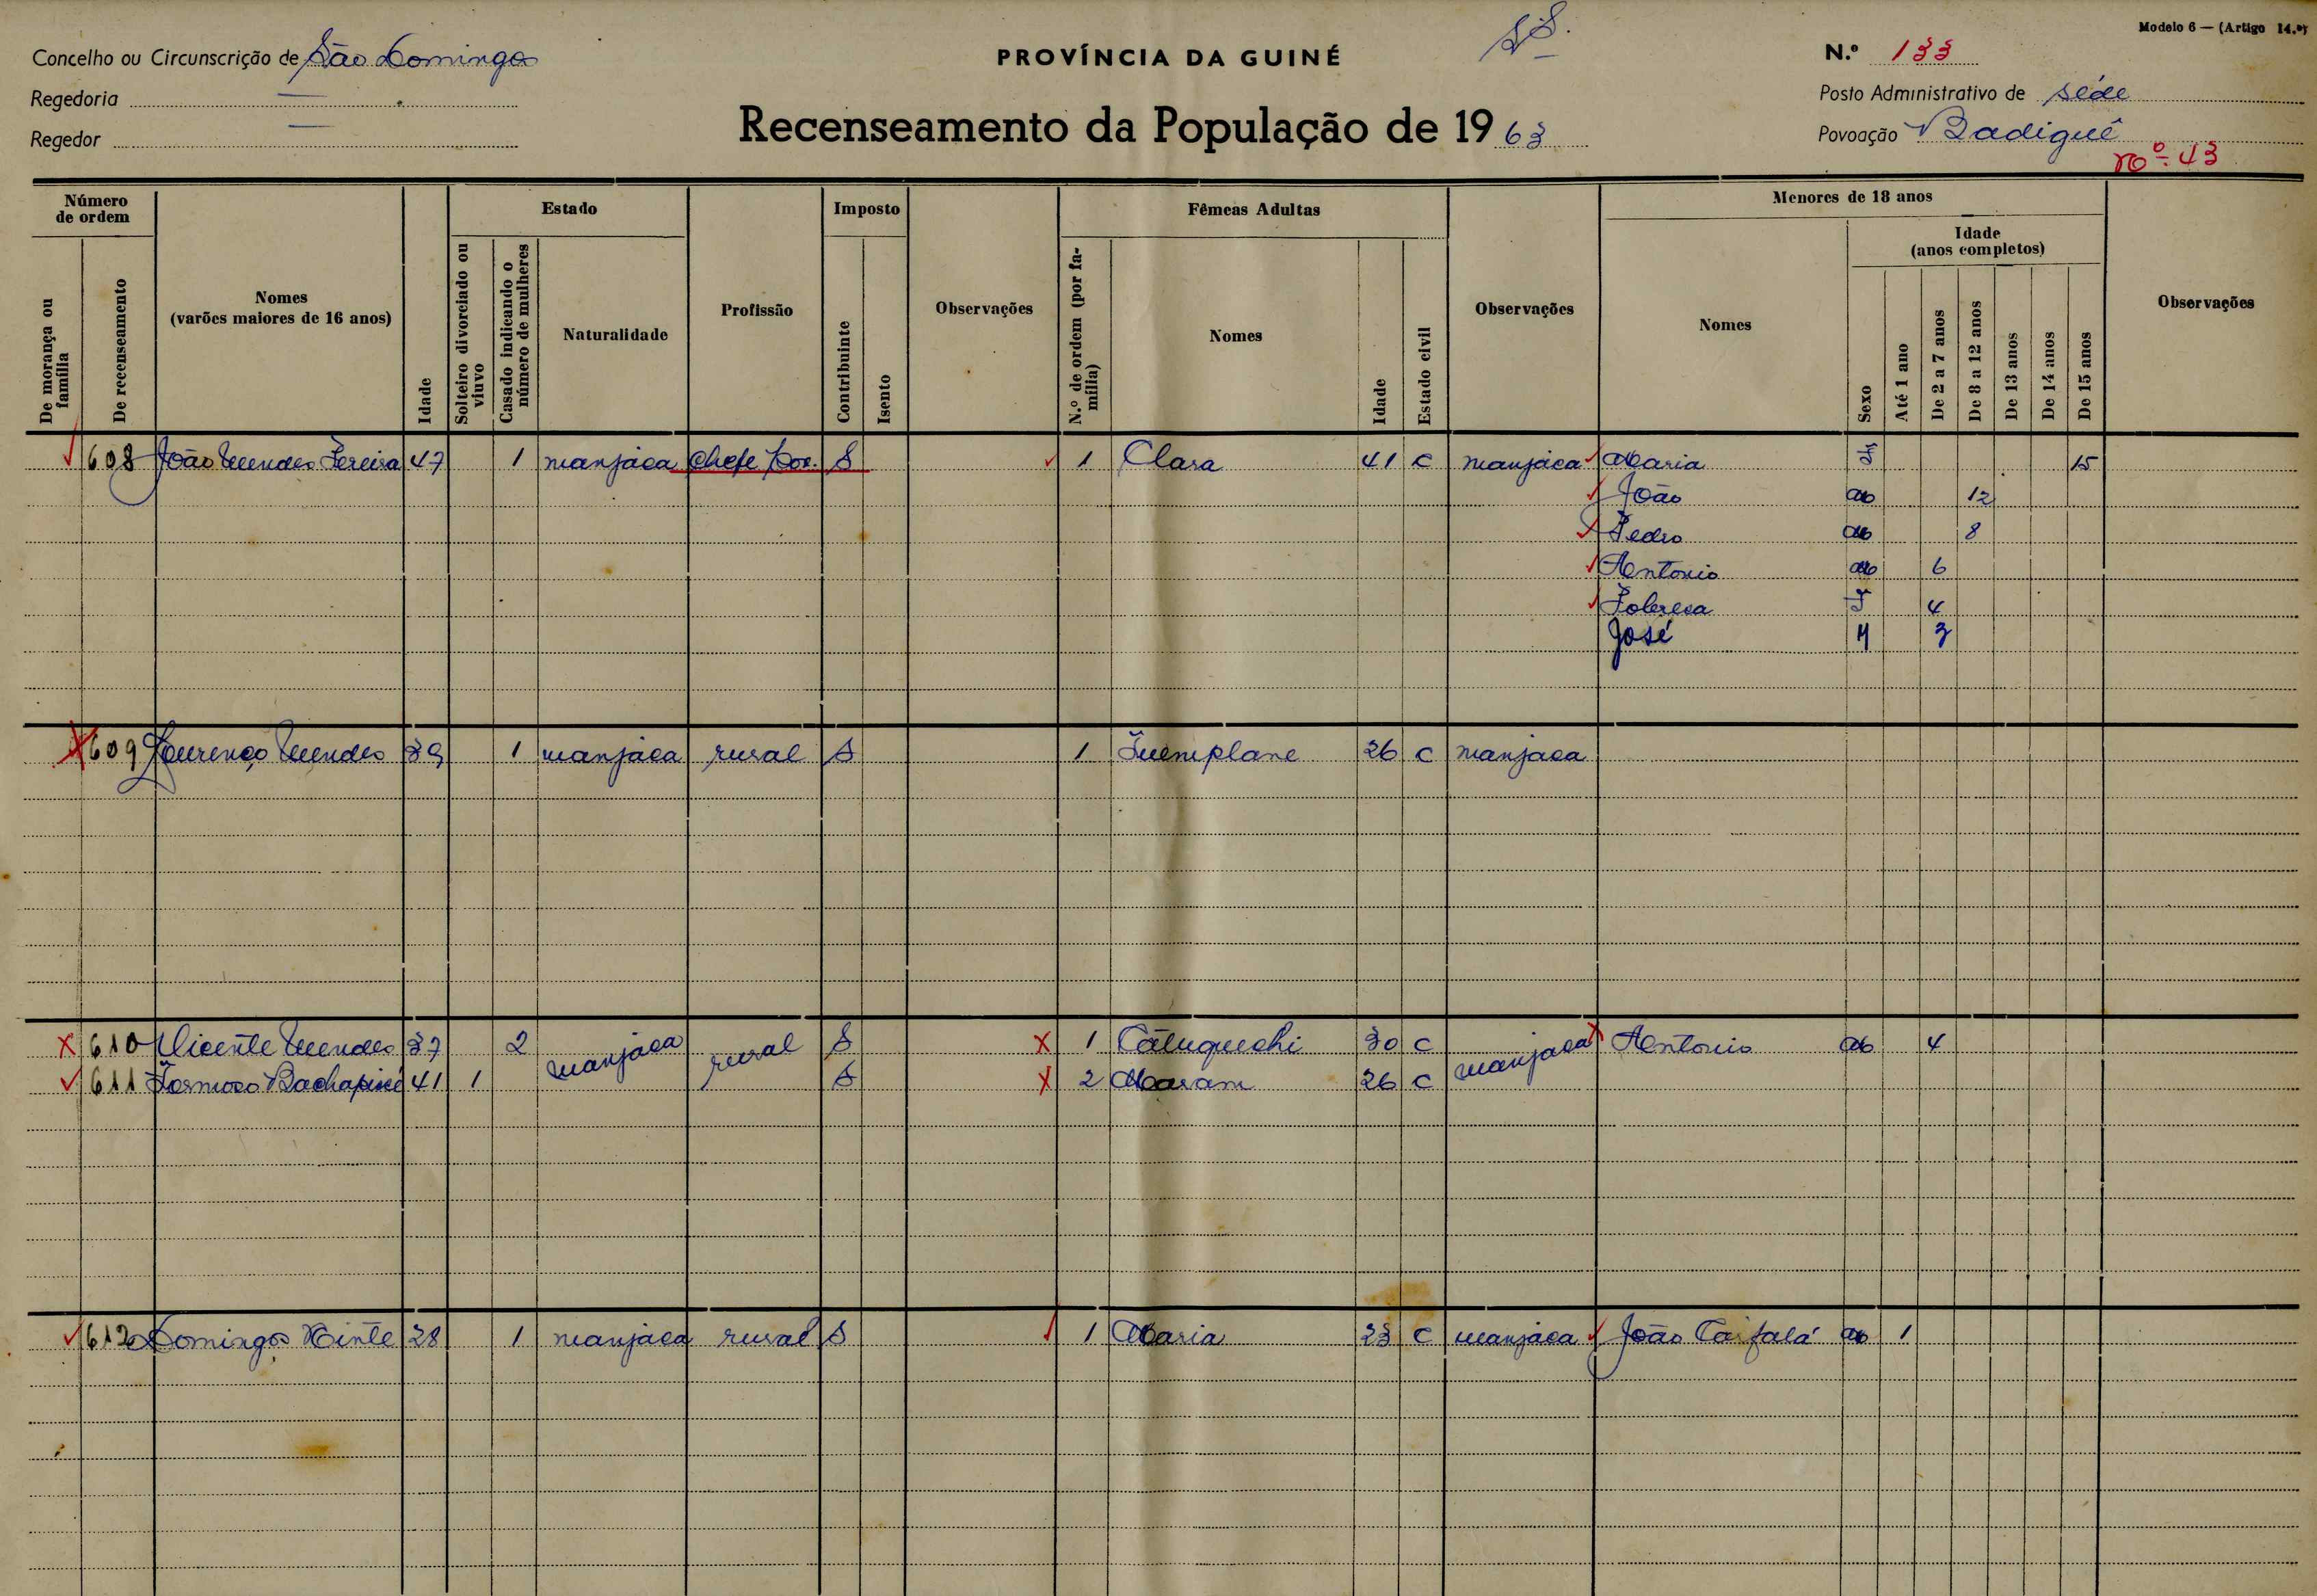 Modelo 6 — (Artigo 14.º)
Concelho ou Circunscrição de São Domingos
PROVÍNCIA DA GUINÉ
N.º 133
Regedoria —
Posto Administrativo de séde
Regedor —
Recenseamento da População de 1963
Povoação Badiguê
nº 43
Número de ordem
De morança ou família
De recenseamento
Nomes
(varões maiores de 16 anos)
Idade
Estado
Solteiro divorciado ou viuvo
Casado indicando o número de mulheres
Naturalidade
Profissão
Imposto
Contribuinte
Isento
Observações
Fêmeas Adultas
N.º de ordem (por família)
Nomes
Idade
Estado civil
Observações
Menores de 18 anos
Nomes
Sexo
Idade
(anos completos)
Até 1 ano
De 2 a 7 anos
De 8 a 12 anos
De 13 anos
De 14 anos
De 15 anos
Observações
608 João Mendes Pereira 47 1 manjaca chefe S 1 Clara 41 c manjaca Maria F 15
João M 12
Pedro M 8
Antonio M 6
F 4
José M 3
609 Lourenço Mendes 39 1 manjaca rural S 1 26 c manjaca
610 Vicente Mendes 37 2 manjaca rural S 1 30 c manjaca Antonio M 4
611 Formoso 41 1 S 2 Maram 26 c
612 Domingos 28 1 manjaca rural S 1 Maria 23 c manjaca João M 1